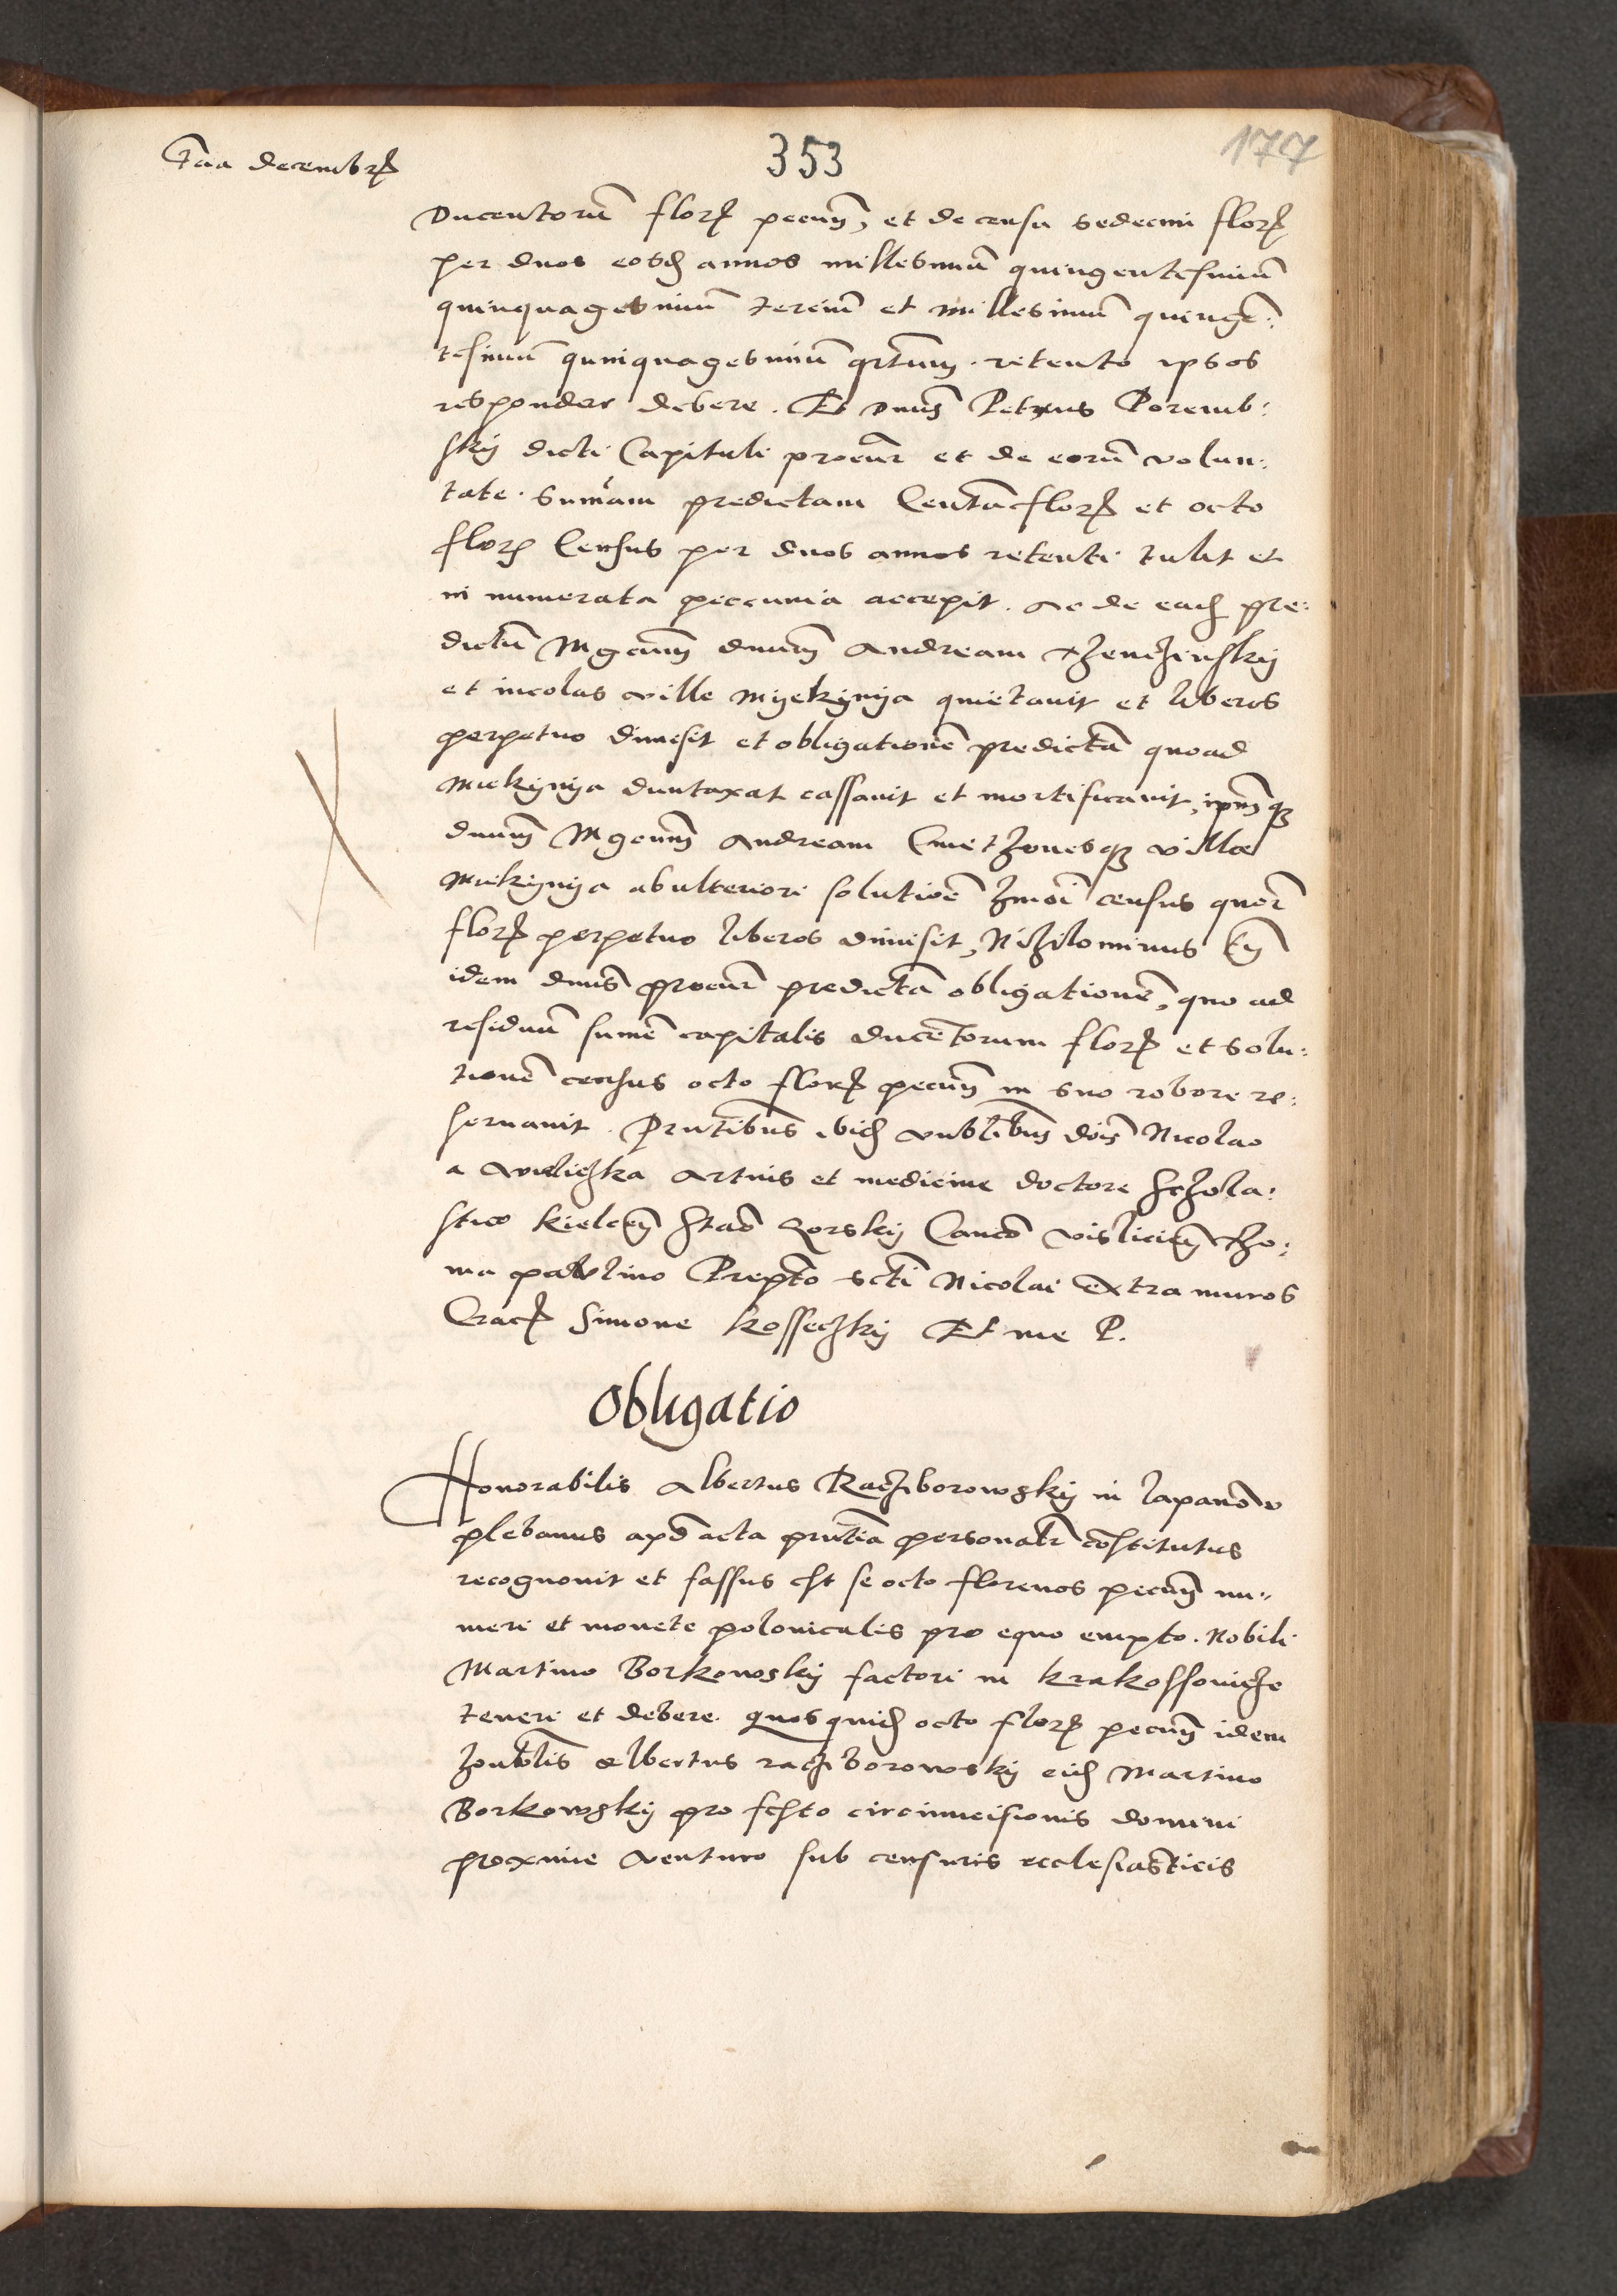 353
177
decembr
Ducentorū flor pecun, et de censu sedecim flor
per duos eosd annos millesimū quingentesimū
quinquagesimū terciū et millesimū quingē:
tesimū quinquagesimū qrtum retento ipsos
responder debere. Et dnus Petrus Poremb:
skij dicti Capituli procur et de eorū volun:
tate sum̄am predictam Centū flor et octo
flor Census per duos annos retenti tulit et
in numerata peccunia accepit. Ac de ead pre:
dictū Mgcum dnum Andream Thenchinskij
et incolas ville Myekynya quietavit et liberos
perpetuo dimisit et obligationē predictā quoad
Miekynya duntaxat cassavit et mortificavit, ipmq
dnum Mgcum Andream Cmethonesq villæ
Miekynya ab ulteriori solutiōe hmōi census
flor perpetuo liberos dimisit, Nihilominus tn
idem dnus procur predictā obligationē, quo ad
residuū sum̄e capitalis ducētorum flor et solu:
tionē census octo flor pecun in suo robore re:
servavit. Prntibus ibid dnis Nicolao
a Wielichka Artius et medicine doctore Schola:
stico kielcen Stao Gorskij Canco vislicien Tho:
ma pawlino Prepto scti Nicolai extra muros
Crac Simone Kossechkij Et me P.
Obligatio
Honorabilis Albertus Rachiborowskij in lapanow
plebanus apd acta prntia personalr cōstitutus
recognovit et fassus est se octo florenos pecun nu:
meri et monete polonicalis pro equo empto. Nobili
Martino Borkowskij factori in krakossoviche
teneri et debere. quos quid octo flor pecun idem
honblis Albertus rachiborowskij eid Martino
Borkowskij pro festo circumcisionis domini
proxime venturo sub censuris ecclesiasticis